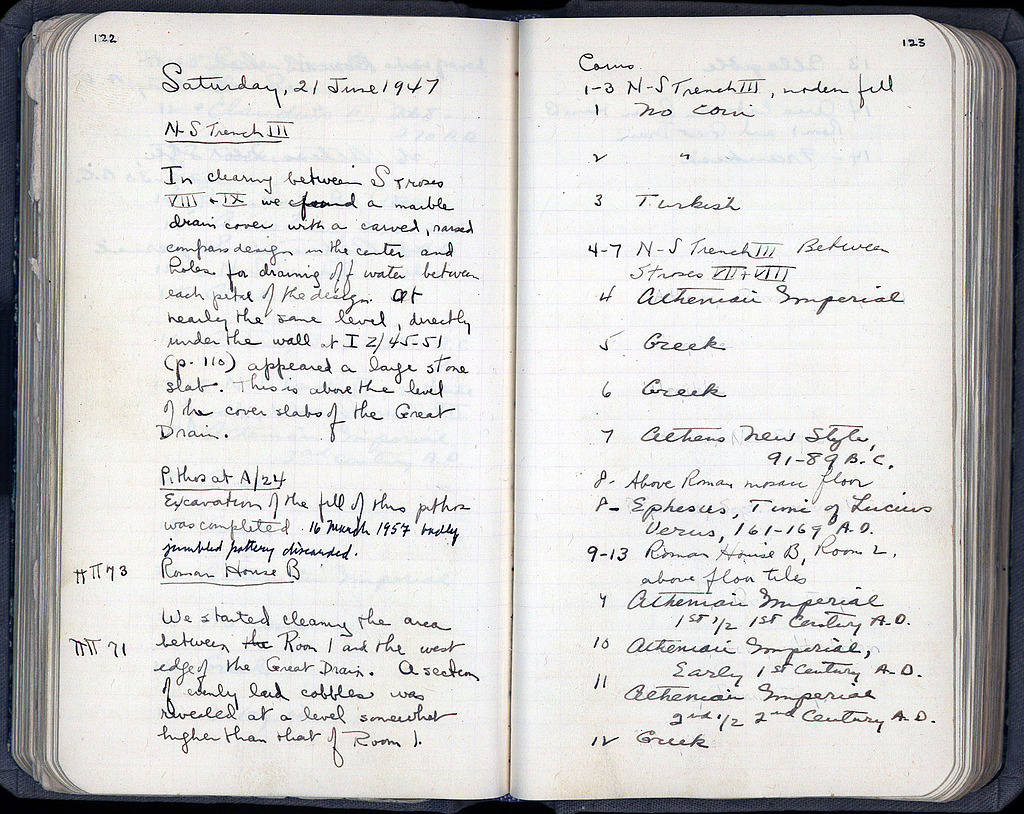 122
Saturday, 21 June 1947
N-S Trench III
In clearing between Stroses
VIII + IX we found a marble
drain cover with a carved, raised
compass design in the center and
holes for draining off water between
each petal of the design. At
nearly the same level, directly
under the wall at I 2/45-51
(p. 110) appeared a large stone
slab. This is above the level
of the cover slabs of the Great
Drain.
Pithos at A/24
Excavation of the fill of this pithos
was completed. 16 March 1957 badly
jumbled pottery discarded.
ΠΠ 73
Roman House B
We started cleaning the area
ΠΠ 71
between the Room 1 and the west
edge of the Great Drain. A section
of evenly laid cobbles was
revealed at a level somewhat
higher than that of Room 1.
123
Coins
1-3 N-S Trench III, modern fill
1 No coin
2 "
3 Turkish
4-7 N-S Trench III Between
Stroses VII + VIII
4 Athenian Imperial
5 Greek
6 Greek
7 Athens New Style,
91-89 B.C.
8- Above Roman mosaic floor
8- Ephesus, Time of Lucius
Verus, 161-169 A.D.
9-13 Roman House B, Room 2,
above floor tiles
9 Athenian Imperial
1st 1/2 1st Century A.D.
10 Athenian Imperial,
Early 1st Century A.D.
11 Athenian Imperial
2nd 1/2 2nd Century A.D.
12 Greek